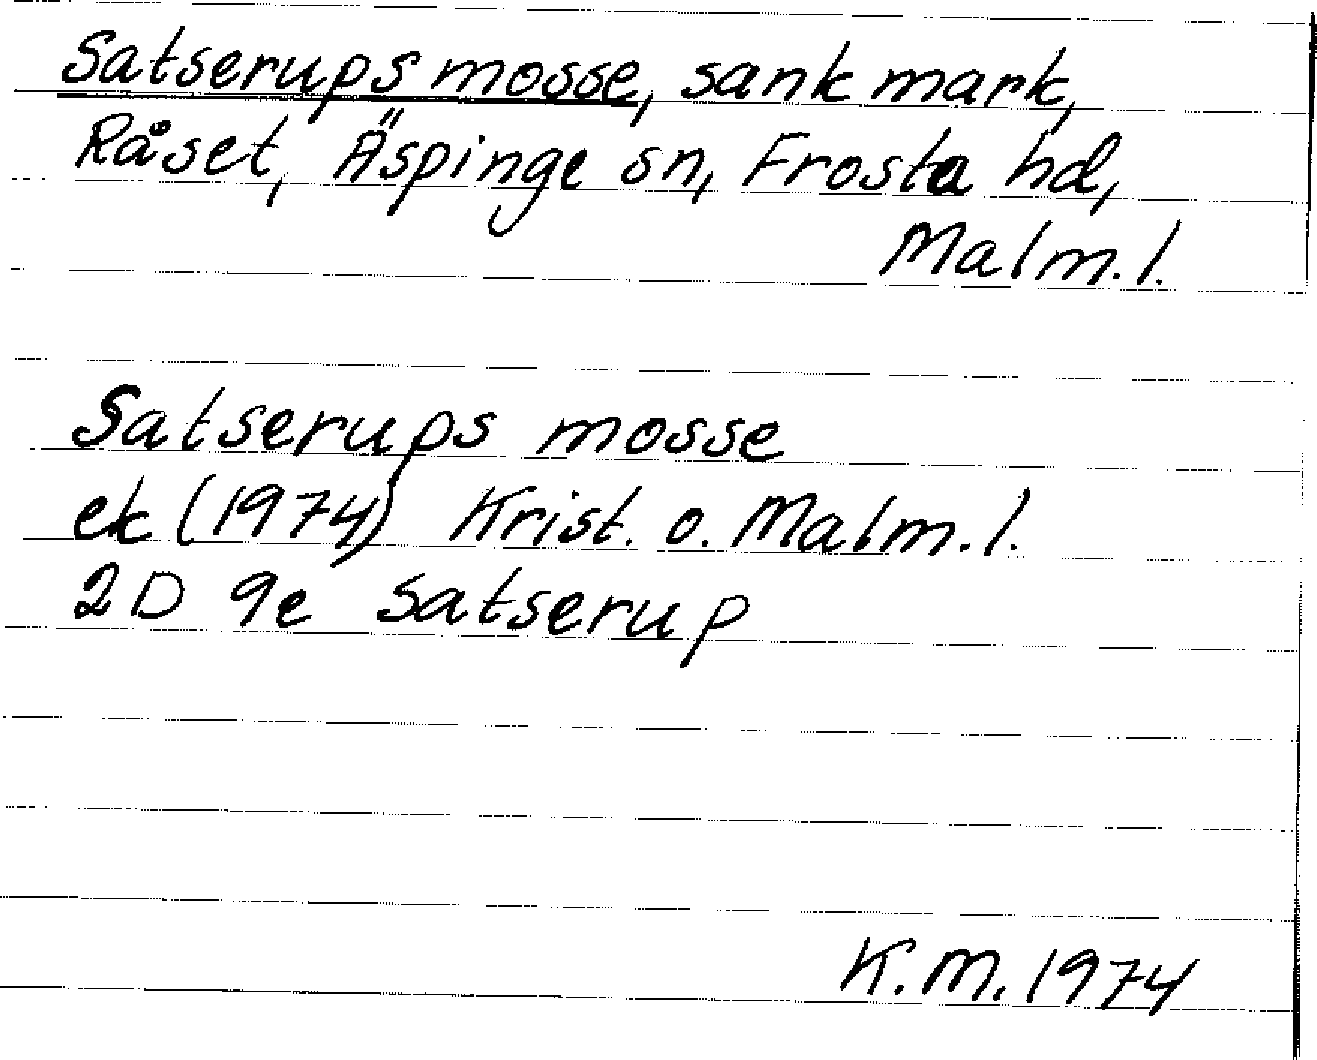 Satserups mosse, sank mark,
Råset, Äspinge sn, Frosta hd,
Malm.l.
Satserups mosse
ek (1974) Krist. o. Malm.l.
2D 9e Satserup
K.M. 1974